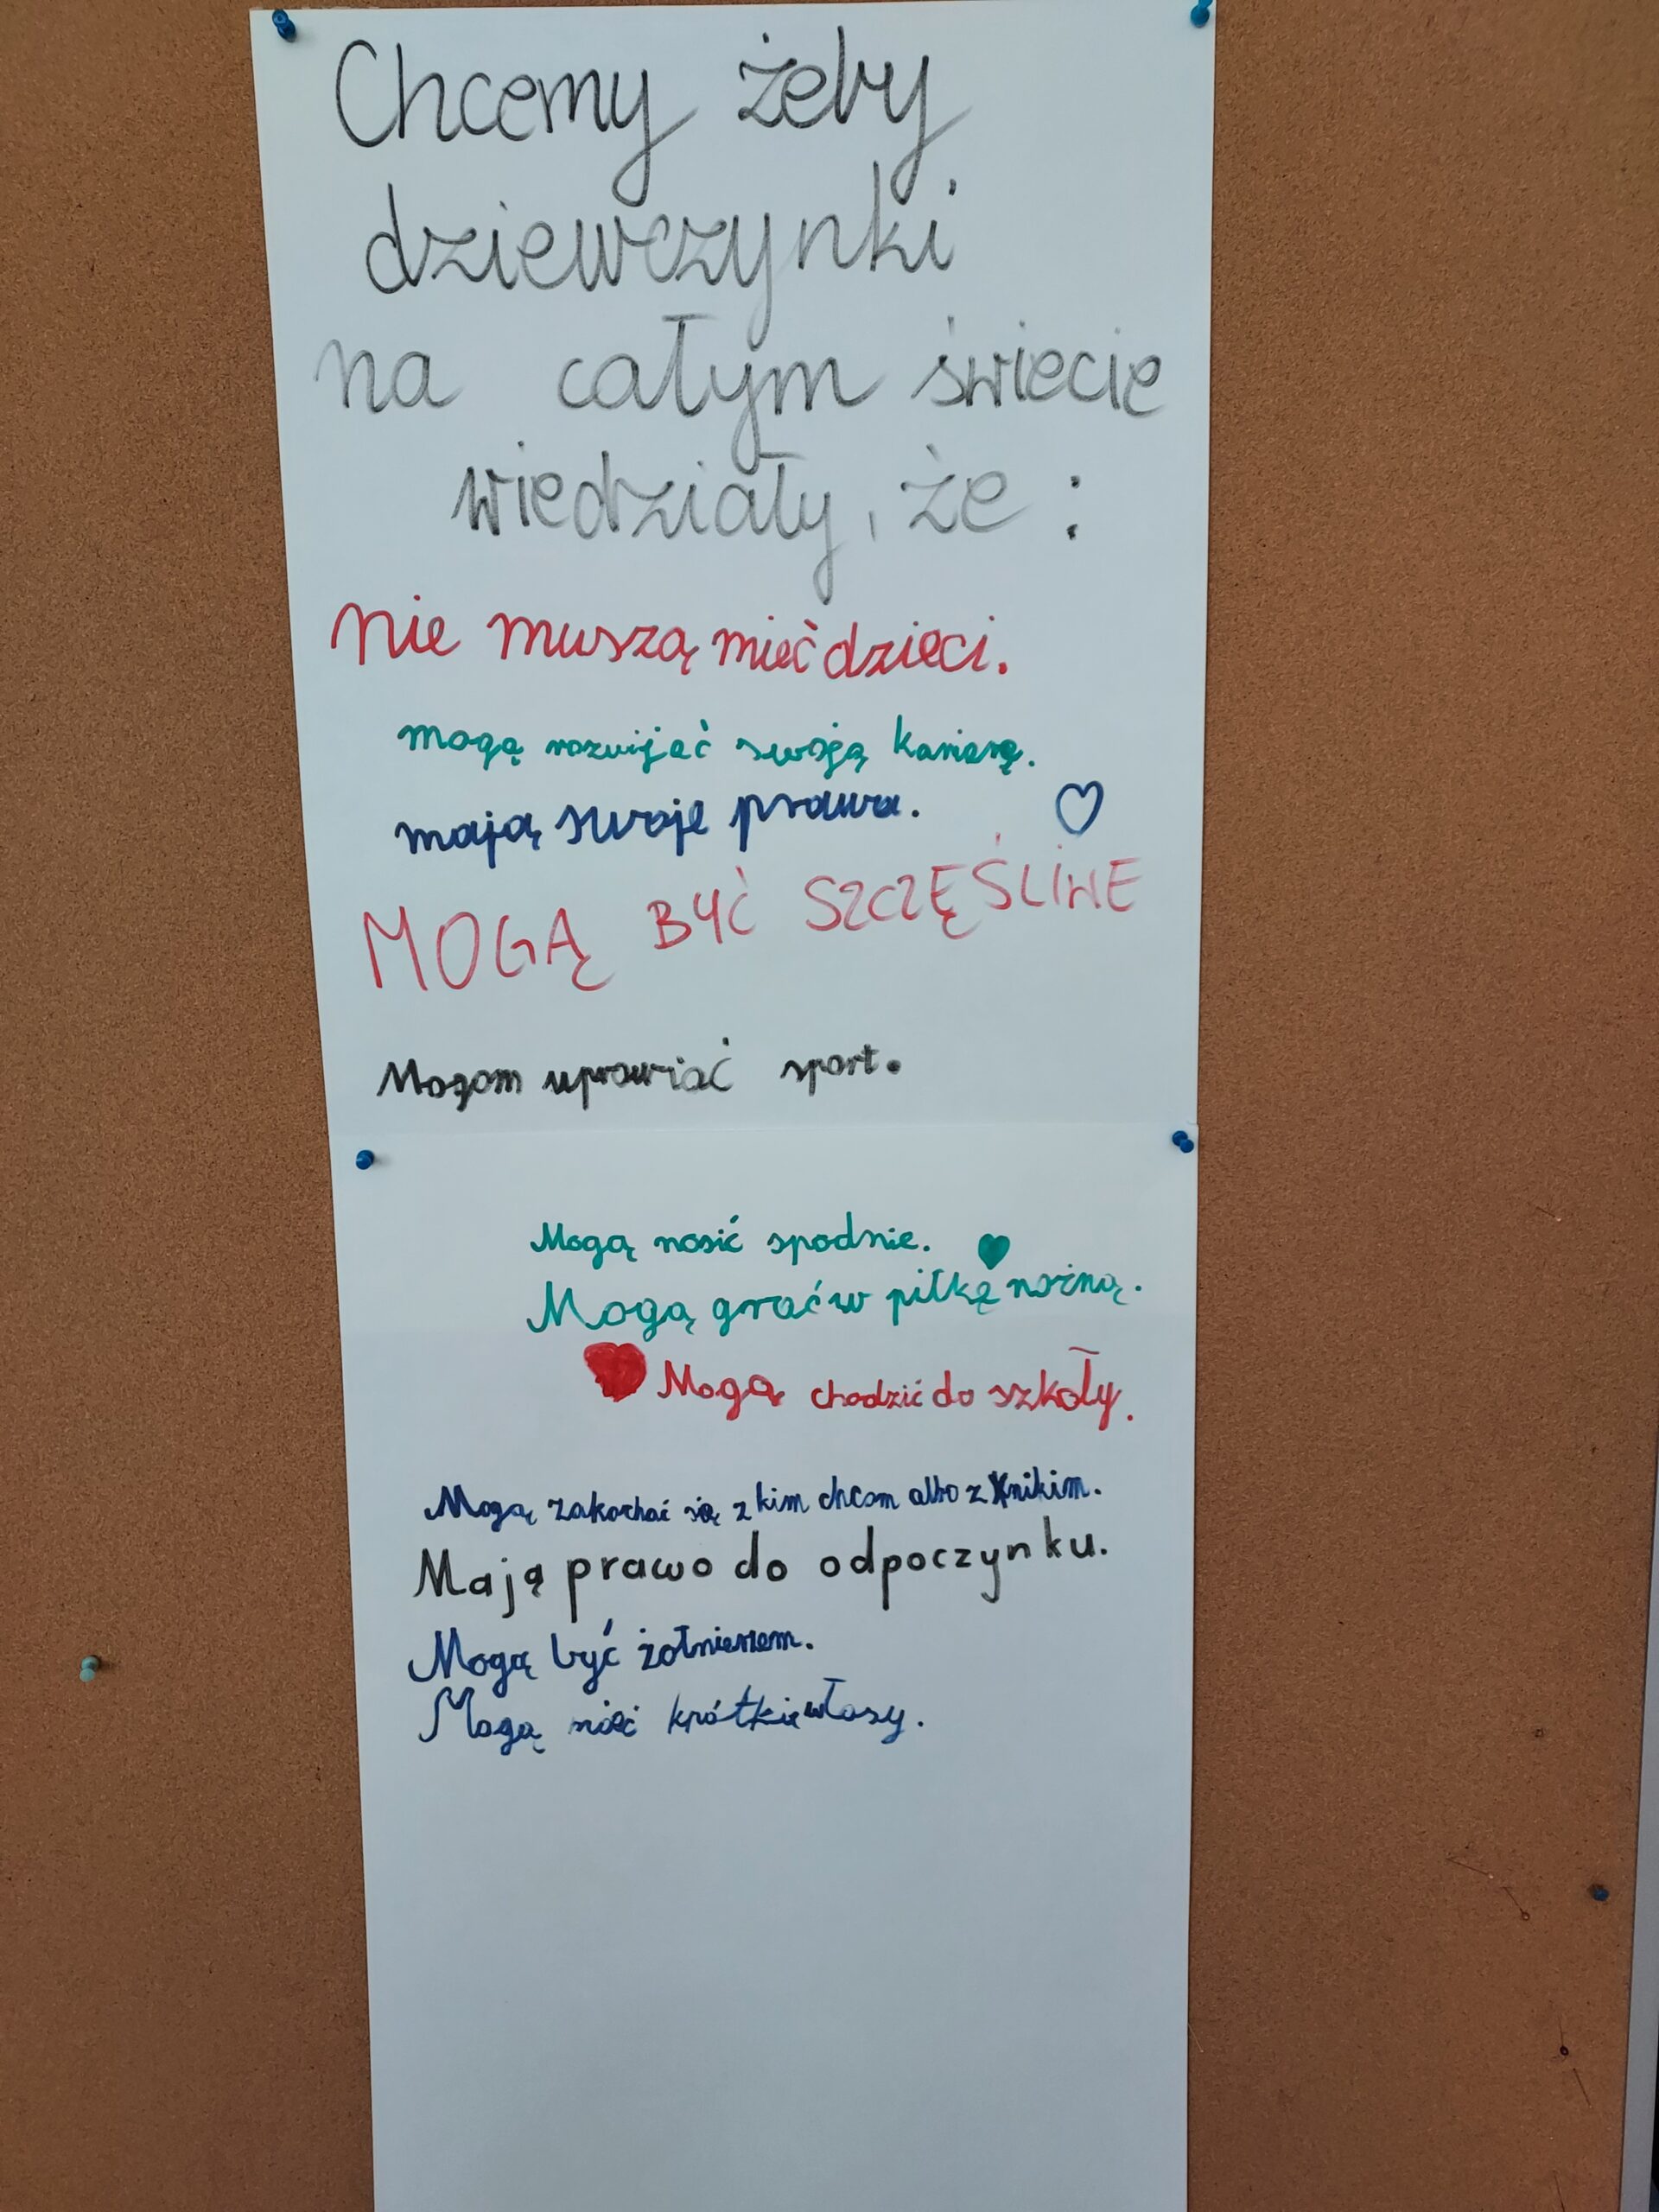 Chcemy żeby
dziewczynki
na całym świecie
wiedziały, że :
nie muszą mieć dzieci.
mogą rozwijać swoją karierę.
mają swoje prawa.
MOGĄ BYĆ SZCZĘŚLIWE
Mogom uprawiać sport.
Mogą nosić spodnie.
Mogą grać w piłkę nożną.
Mogą chodzić do szkoły.
Mogą zakochać się z kim chcom albo z nikim.
Mają prawo do odpoczynku.
Mogą być żołnierzem.
Mogą mieć krótkie włosy.